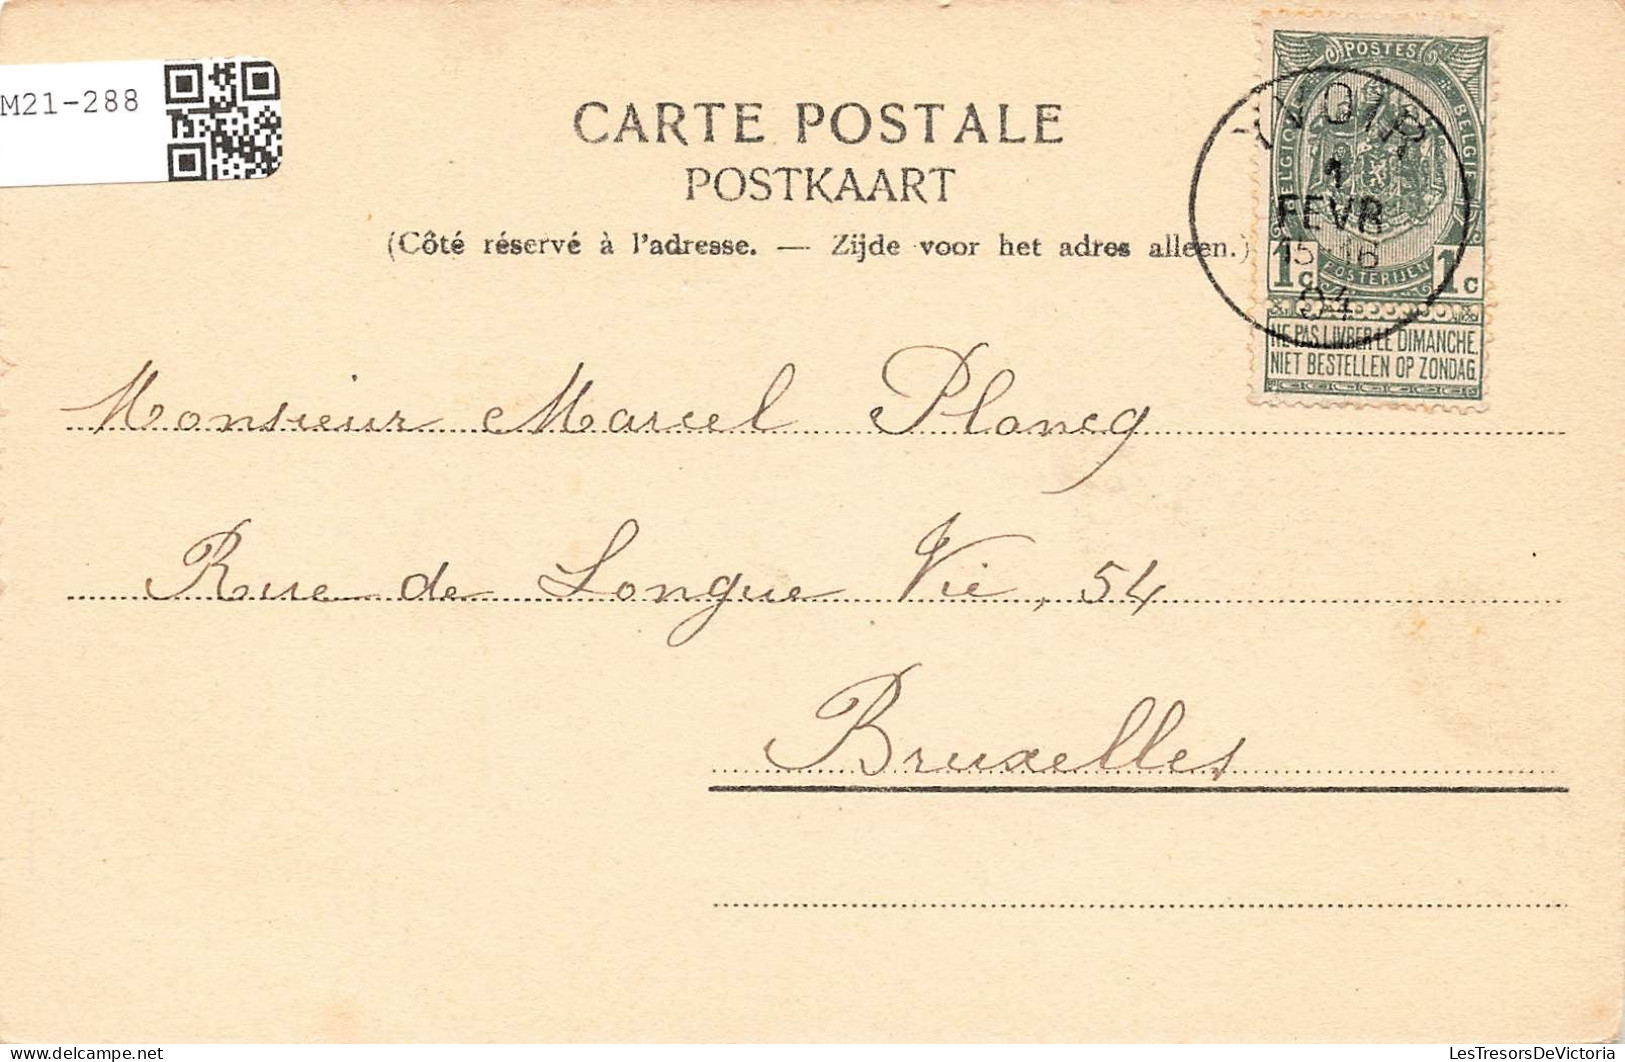 M21-288
CARTE POSTALE
POSTKAART
(Côté réservé à l'adresse. — Zijde voor het adres alleen.)
POSTES
BELGIQUE BELGIË
YVOIR
1
FEVR
15-16
04
1c POSTERIJEN 1c
NE PAS LIVRER LE DIMANCHE.
NIET BESTELLEN OP ZONDAG
Monsieur Marcel Plancq
Rue de Longue Vie, 54
Bruxelles
LesTresorsDeVictoria
delcampe.net